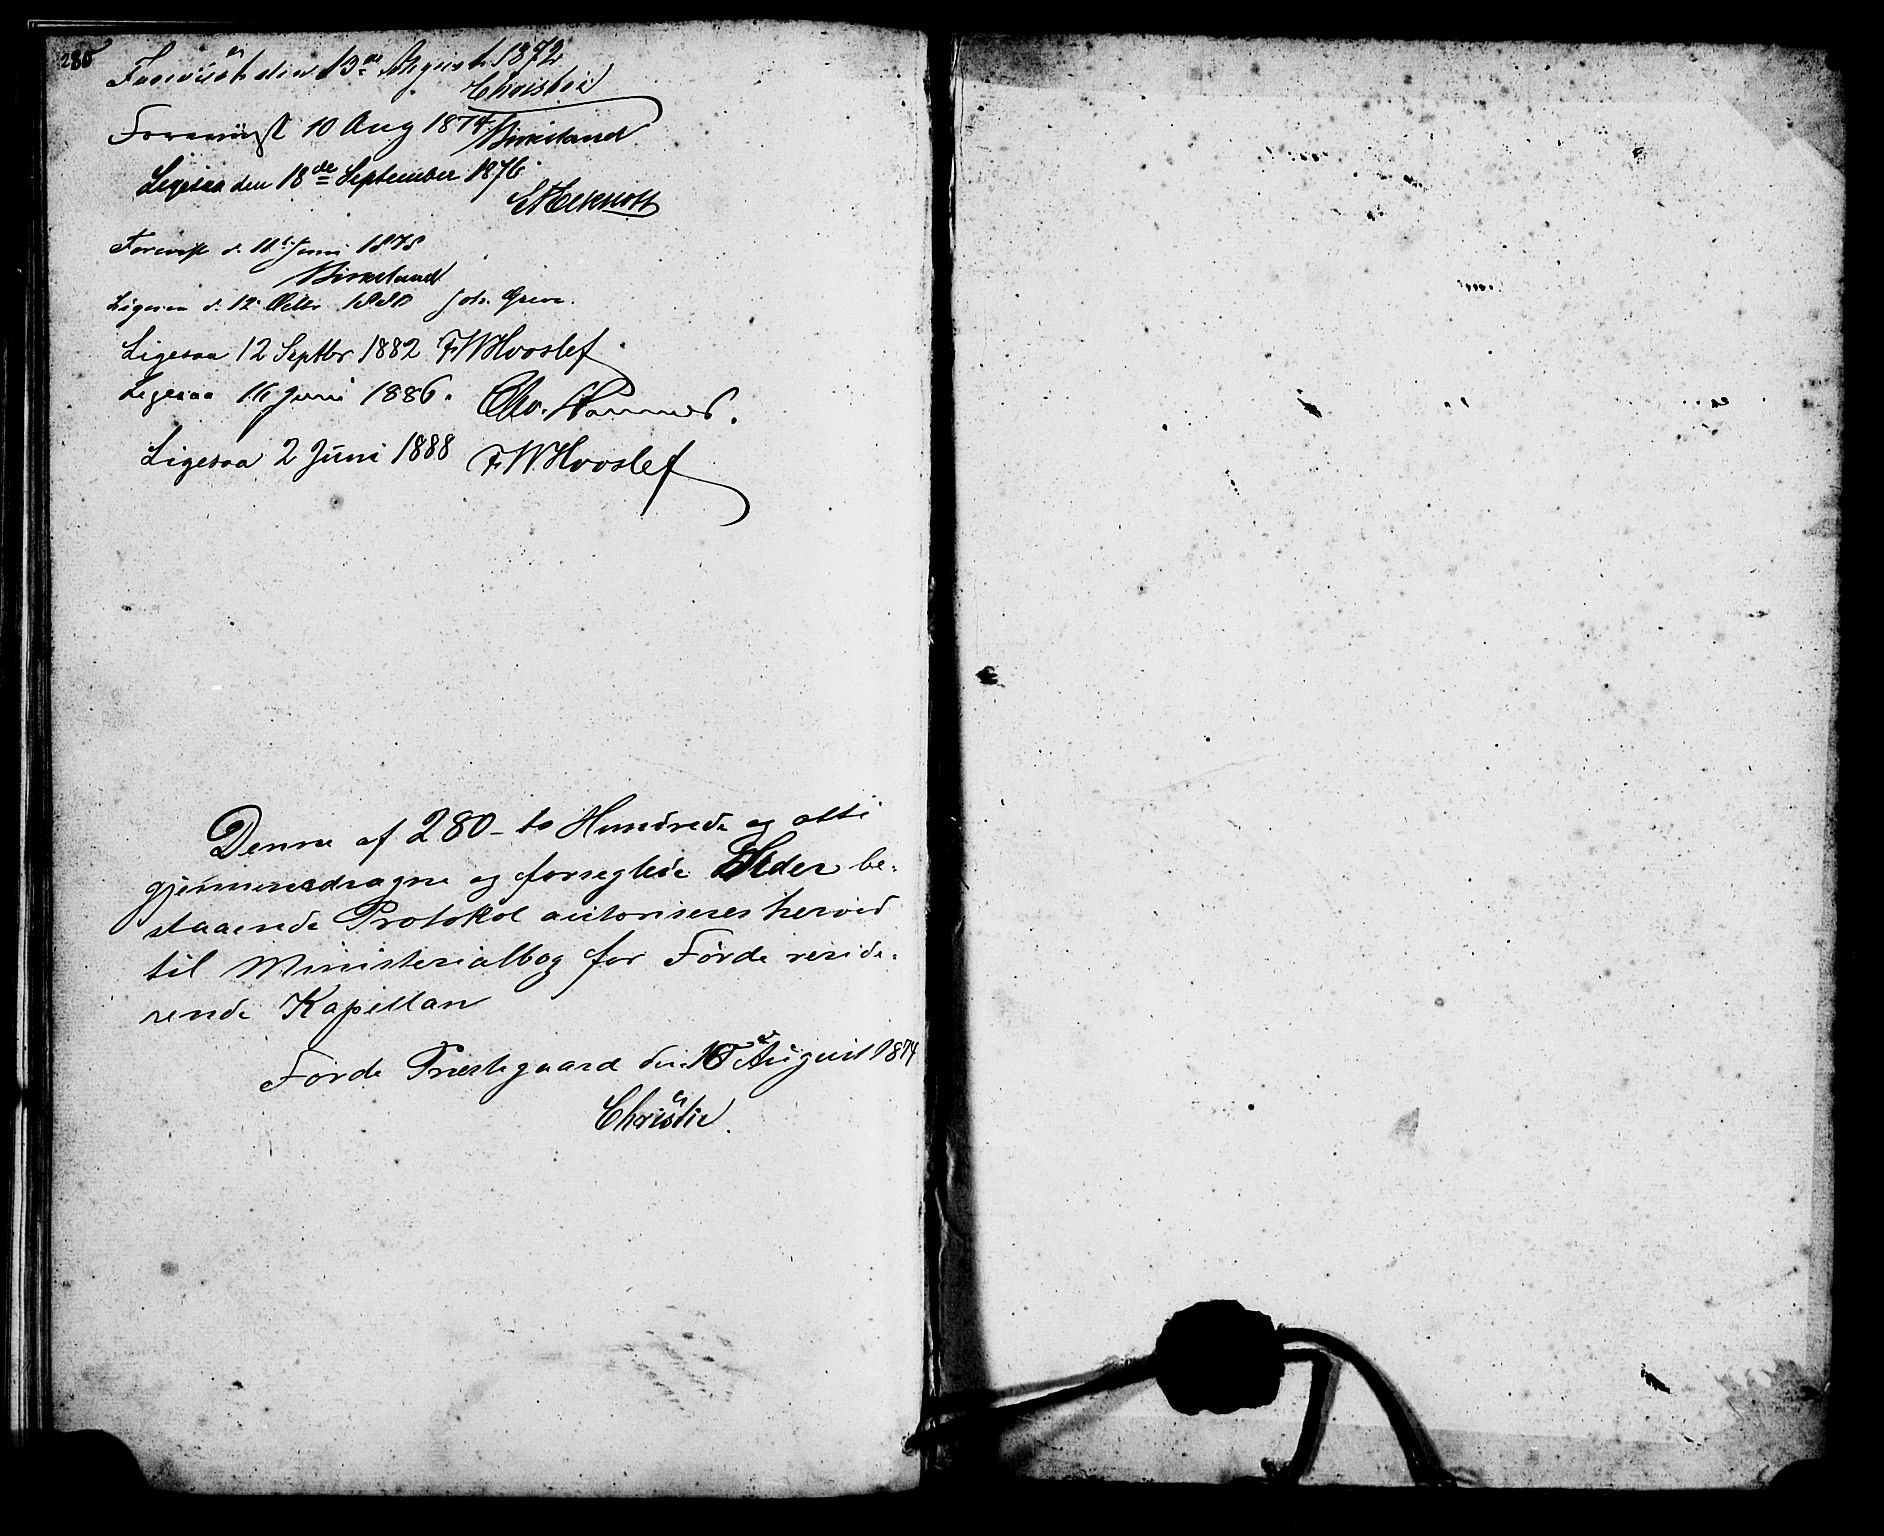 280
Foreviist den 13de August 1872
Christie
Forevist 10 Aug 1874 Birkeland
Ligesaa den 18de September 1876
Forevist d. 11t Juni 1878
Birkeland
Ligesaa d. 12 Octbr 1880 Joh. Greve.
Ligesaa 12 Septbr 1882 F.W.Hvoslef
Ligesaa 16 Juni 1886.
Ligesaa 2 Juni 1888 F.W.Hvoslef
Denne af 280 - to Hundrede og otti
gjennemdragne og forseglede Sider be-
staaende Protokol autoriseres herved
til Ministerialbog for Førde reside-
rende Kapellan
Førde Præstegaard den August 1874
Christie.